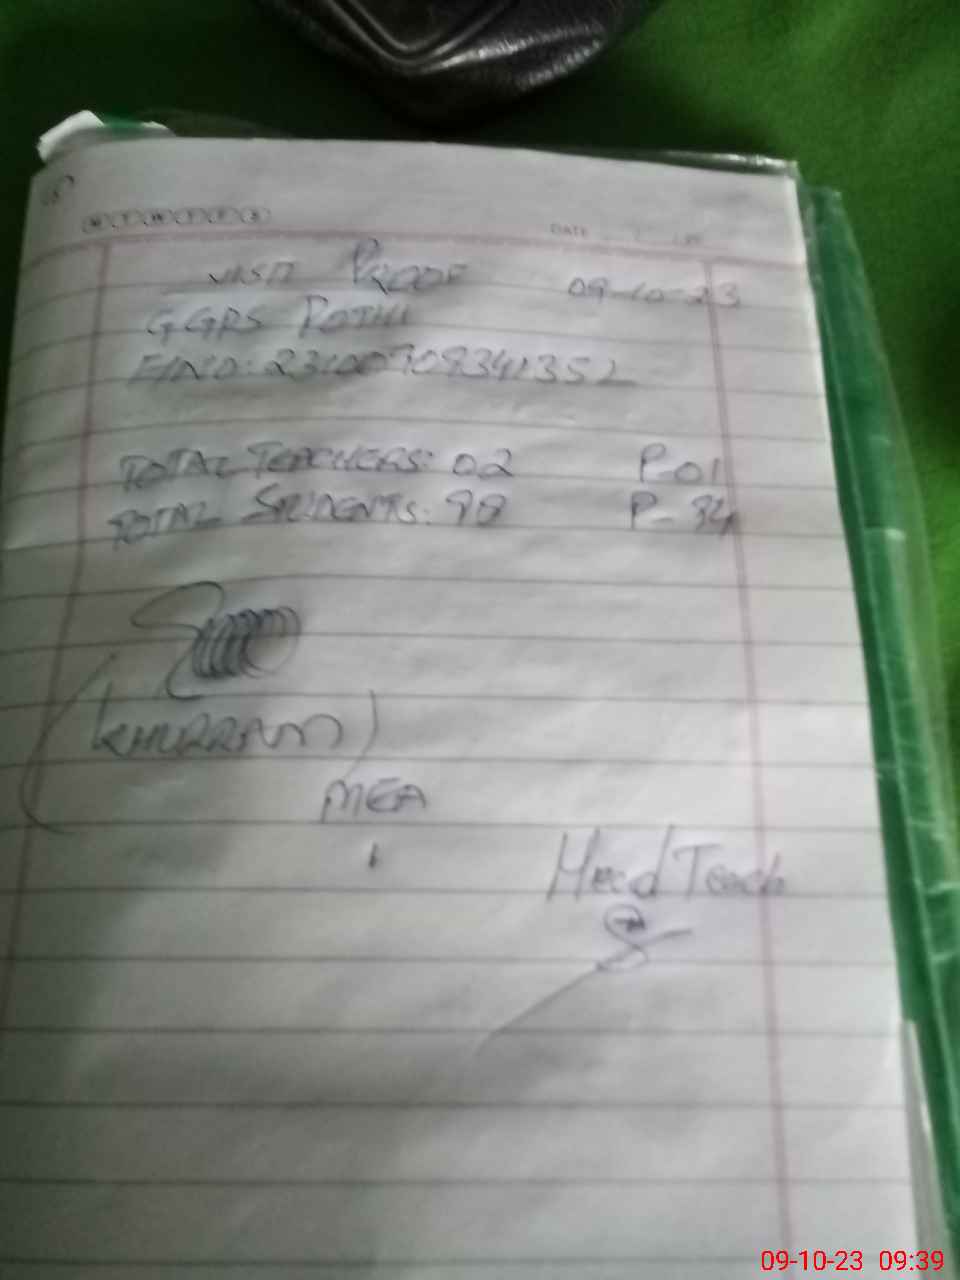 M T W T F S
DATE
VISIT PROOF 09-10-23
GGPS POTHI
TOTAL TEACHERS: 02 P-01
TOTAL STUDENTS: P-34
(KHURRAM)
MEA
Head Teach
09-10-23 09:39